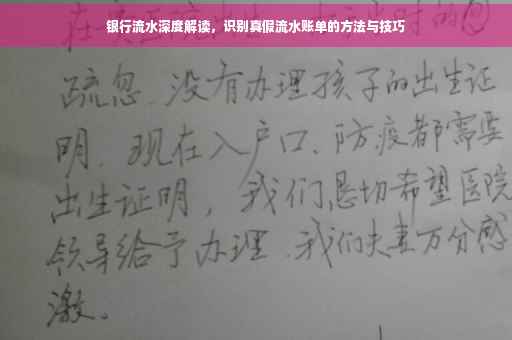 银行流水深度解读，识别真假流水账单的方法与技巧
疏忽、没有办理孩子的出生证
明、现在入户口、防疫都需要
出生证明，我们恳切希望医院
领导给予办理、我们夫妻万分感
激。